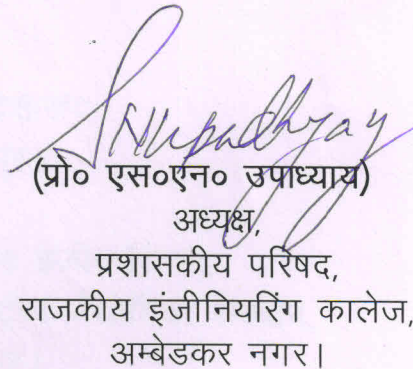 SNUpadhyay
(प्रो० एस०एन० उपाध्याय)
अध्यक्ष,
प्रशासकीय परिषद,
राजकीय इंजीनियरिंग कालेज,
अम्बेडकर नगर।